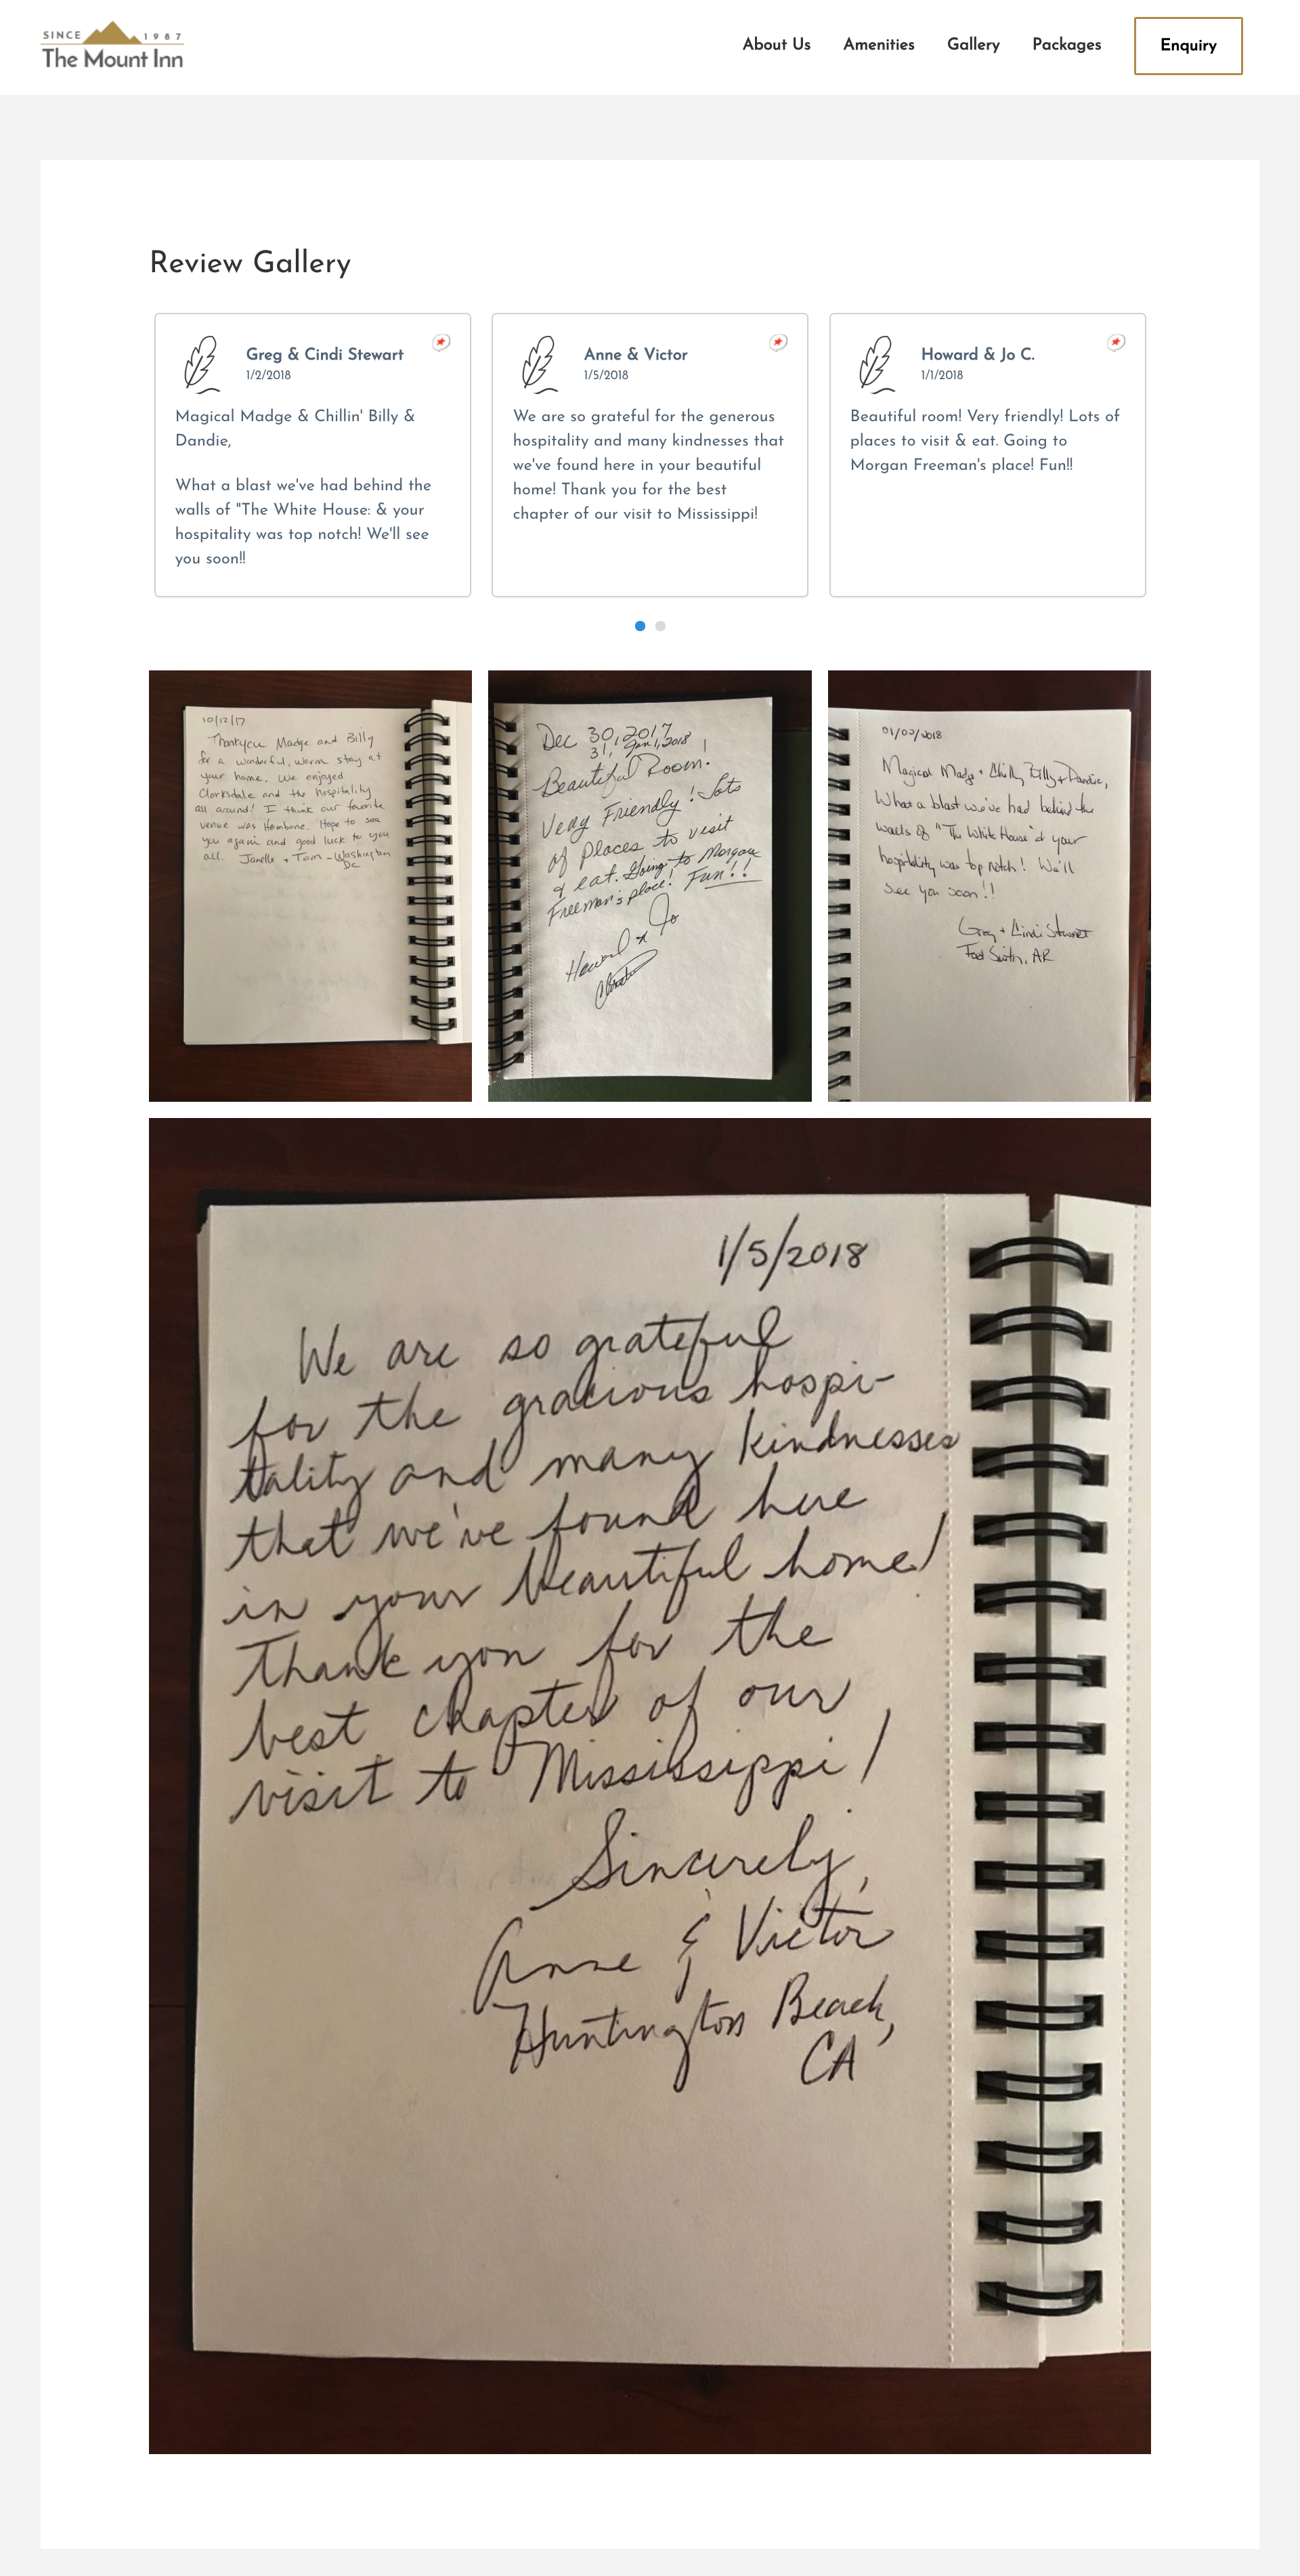 SINCE 1987
The Mount Inn
About Us
Amenities
Gallery
Packages
Enquiry
Review Gallery
Greg & Cindi Stewart
1/2/2018
Magical Madge & Chillin' Billy &
Dandie,
What a blast we've had behind the
walls of "The White House: & your
hospitality was top notch! We'll see
you soon!!
Anne & Victor
1/5/2018
We are so grateful for the generous
hospitality and many kindnesses that
we've found here in your beautiful
home! Thank you for the best
chapter of our visit to Mississippi!
Howard & Jo C.
1/1/2018
Beautiful room! Very friendly! Lots of
places to visit & eat. Going to
Morgan Freeman's place! Fun!!
10/12/17
Thankyou Madge and Billy
for a wonderful, warm stay at
your home. We enjoyed
Clarksdale and the hospitality
all around! I think our favorite
venue was Hambone. Hope to see
you again and good luck to you
all. Janelle + Tom - Washington
DC
Dec 30, 2017
31, Jan 1, 2018
Beautiful Room!
Very Friendly! Lots
of Places to visit
& eat. Going to Morgan
Freeman's place! Fun!!
Howard & Jo
01/02/2018
Magical Madge + Billy + Dandie,
What a blast we've had behind the
walls of "The White House" & your
hospitality was top notch! We'll
see you soon!!
Greg + Cindi Stewart
Fort Smith, AR
1/5/2018
We are so grateful
for the gracious hospi-
tality and many kindnesses
that we've found here
in your beautiful home!
Thank you for the
best chapter of our
visit to Mississippi!
Sincerely,
Anne & Victor
Huntington Beach,
CA